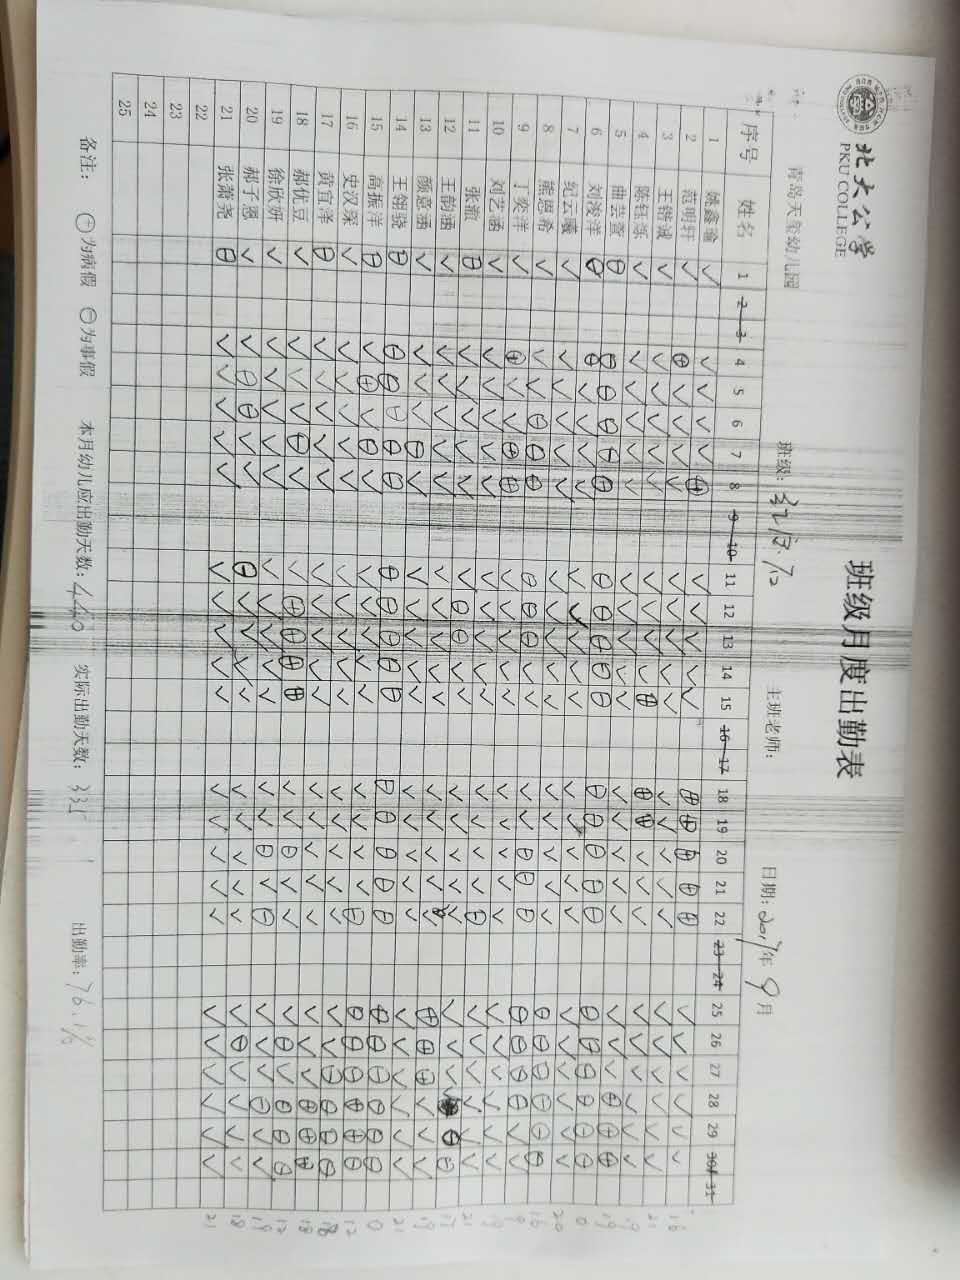 北大公学
PKU COLLEGE
班级月度出勤表
青岛天玺幼儿园 班级: 主班老师: 日期: 2017年 9月
序号 姓名 1 2 3 4 5 6 7 8 9 10 11 12 13 14 15 16 17 18 19 20 21 22 23 24 25 26 27 28 29 30 31
1 姚鑫瑜
2 范明轩
3 王锴诚
4 陈钰烁
5 曲芸萱
6 刘浚洋
7 纪云曦
8 熊恩希
9 丁奕洋
10 刘艺涵
11 张颖
12 王韵涵
13 颜意涵
14 王翎骁
15 高振洋
16 史汉琛
17 黄宜泽
18 郝优豆
19 徐欣妍
20 郝子恩
21 张萧尧
22
23
24
25
备注: ⊕为病假 ⊖为事假 本月幼儿应出勤天数: 440 实际出勤天数: 335 出勤率: 76.1%